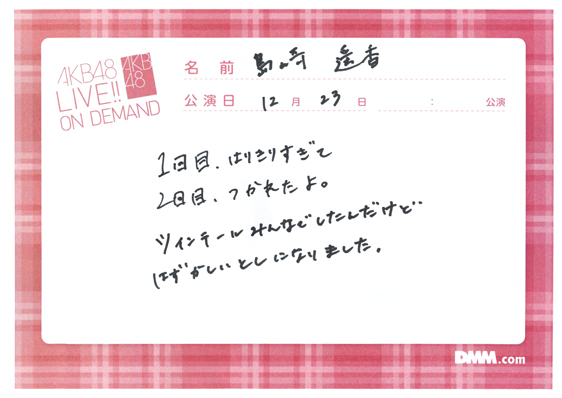 AKB48
LIVE!!
ON DEMAND
AKB
48
名前 島崎 遥香
公演日 12月23日 : 公演
1日目、はりきりすぎて
2日目、つかれたよ。
ツインテールみんなでしたんだけど
はずかしいとしになりました。
DMM.com